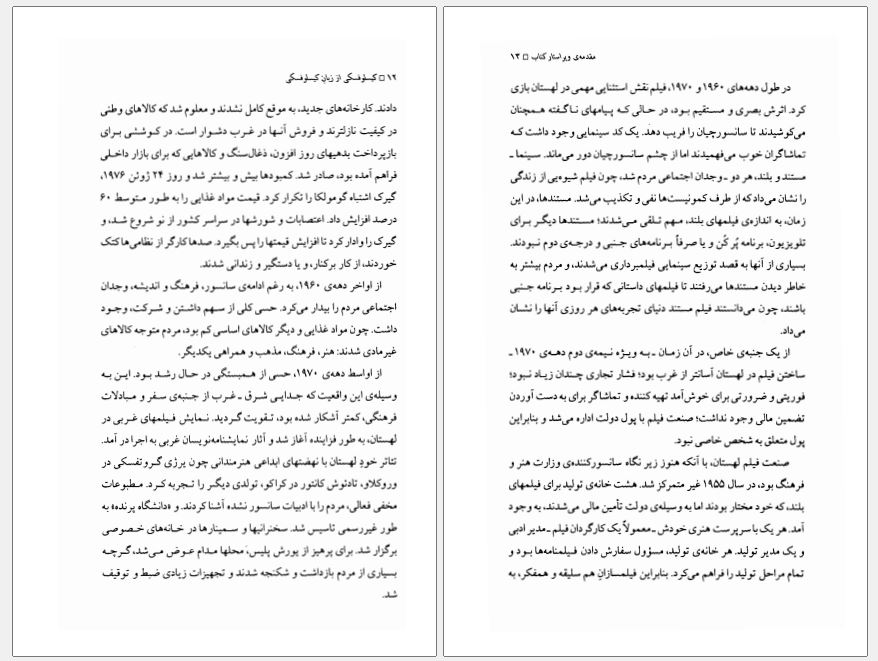 ۱۲ □ کیسلوفسکی از زبان کیسلوفسکی
دادند. کارخانه‌های جدید، به موقع کامل نشدند و معلوم شد که کالاهای وطنی
در کیفیت نازلترند و فروش آنها در غرب دشوار است. در کوششی برای
بازپرداخت بدهیهای روز افزون، ذغال‌سنگ و کالاهایی که برای بازار داخلی
فراهم آمده بود، صادر شد. کمبودها بیش و بیشتر شد و روز ۲۴ ژوئن ۱۹۷۶،
گیرک اشتباه گومولکا را تکرار کرد. قیمت مواد غذایی را به طور متوسط ۶۰
درصد افزایش داد. اعتصابات و شورشها در سراسر کشور از نو شروع شد، و
گیرک را وادار کرد تا افزایش قیمتها را پس بگیرد. صدها کارگر از نظامی‌ها کتک
خوردند، از کار برکنار، و یا دستگیر و زندانی شدند.
از اواخر دهه‌ی ۱۹۶۰، به رغم ادامه‌ی سانسور، فرهنگ و اندیشه، وجدان
اجتماعی مردم را بیدار می‌کرد. حسی کلی از سهم داشتن و شرکت، وجود
داشت. چون مواد غذایی و دیگر کالاهای اساسی کم بود، مردم متوجه کالاهای
غیرمادی شدند: هنر، فرهنگ، مذهب و همراهی یکدیگر.
از اواسط دهه‌ی ۱۹۷۰، حسی از همبستگی در حال رشد بود. این به
وسیله‌ی این واقعیت که جدایی شرق ـ غرب از جنبه‌ی سفر و مبادلات
فرهنگی، کمتر آشکار شده بود، تقویت گردید. نمایش فیلمهای غربی در
لهستان، به طور فزاینده آغاز شد و آثار نمایشنامه‌نویسان غربی به اجرا در آمد.
تئاتر خودِ لهستان با نهضتهای ابداعی هنرمندانی چون یرژی گروتفسکی در
وروکلاو، تادئوش کانتور در کراکو، تولدی دیگر را تجربه کرد. مطبوعات
مخفی فعالی، مردم را با ادبیات سانسور نشده آشنا کردند. و «دانشگاه پرنده» به
طور غیررسمی تاسیس شد. سخنرانیها و سمینارها در خانه‌های خصوصی
برگزار شد. برای پرهیز از یورش پلیس، محلها مدام عوض می‌شد، گرچه
بسیاری از مردم بازداشت و شکنجه شدند و تجهیزات زیادی ضبط و توقیف
شد.
مقدمه‌ی ویراستار کتاب □ ۱۳
در طول دهه‌های ۱۹۶۰ و ۱۹۷۰، فیلم نقش استثنایی مهمی در لهستان بازی
کرد. اثرش بصری و مستقیم بود، در حالی که پیامهای ناگفته همچنان
می‌کوشیدند تا سانسورچیان را فریب دهد. یک کد سینمایی وجود داشت که
تماشاگران خوب می‌فهمیدند اما از چشم سانسورچیان دور می‌ماند. سینما ـ
مستند و بلند، هر دو ـ وجدان اجتماعی مردم شد، چون فیلم شیوه‌یی از زندگی
را نشان می‌داد که از طرف کمونیست‌ها نفی و تکذیب می‌شد. مستندها، در این
زمان، به اندازه‌ی فیلمهای بلند، مهم تلقی می‌شدند؛ مستندها دیگر برای
تلویزیون، برنامه پُر کُن و یا صرفاً برنامه‌های جنبی و درجه‌ی دوم نبودند.
بسیاری از آنها به قصد توزیع سینمایی فیلمبرداری می‌شدند، و مردم بیشتر به
خاطر دیدن مستندها می‌رفتند تا فیلمهای داستانی که قرار بود برنامه جنبی
باشند، چون می‌دانستند فیلم مستند دنیای تجربه‌های هر روزی آنها را نشان
می‌داد.
از یک جنبه‌ی خاص، در آن زمان ـ به ویژه نیمه‌ی دوم دهه‌ی ۱۹۷۰ ـ
ساختن فیلم در لهستان آسانتر از غرب بود؛ فشار تجاری چندان زیاد نبود؛
فوریتی و ضرورتی برای خوش‌آمد تهیه کننده و تماشاگر برای به دست آوردن
تضمین مالی وجود نداشت؛ صنعت فیلم با پول دولت اداره می‌شد و بنابراین
پول متعلق به شخص خاصی نبود.
صنعت فیلم لهستان، با آنکه هنوز زیر نگاه سانسورکننده‌ی وزارت هنر و
فرهنگ بود، در سال ۱۹۵۵ غیر متمرکز شد. هشت خانه‌ی تولید برای فیلمهای
بلند، که خود مختار بودند اما به وسیله‌ی دولت تأمین مالی می‌شدند، به وجود
آمد. هر یک با سرپرست هنری خودش ـ معمولاً یک کارگردان فیلم ـ مدیر ادبی
و یک مدیر تولید. هر خانه‌ی تولید، مسؤول سفارش دادن فیلمنامه‌ها بود و
تمام مراحل تولید را فراهم می‌کرد. بنابراین فیلمسازانِ هم سلیقه و همفکر، به